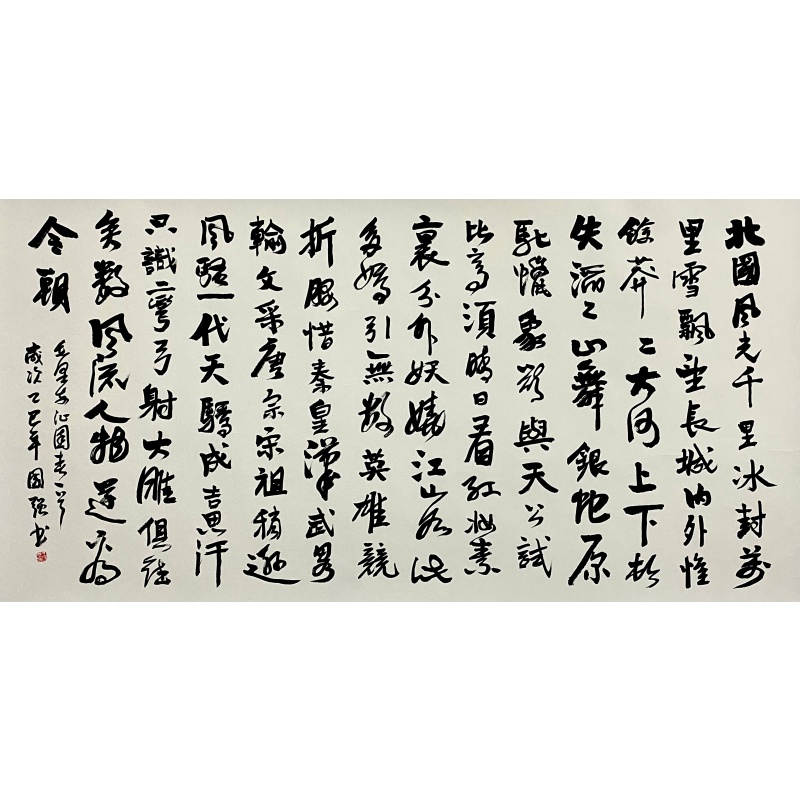 北國风光千里冰封萬
里雪飄望長城内外惟
餘莽々大河上下頓
失滔々山舞銀蛇原
馳蠟象欲與天公試
比高須晴日看红妝素
裹分外妖嬈江山如此
多嬌引無數英雄競
折腰惜秦皇漢武略
輸文采唐宗宋祖稍遜
风騷一代天驕成吉思汗
只識彎弓射大雕俱往
矣數风流人物還看
今朝
毛泽东沁園春一首
歲次乙巳年國强书